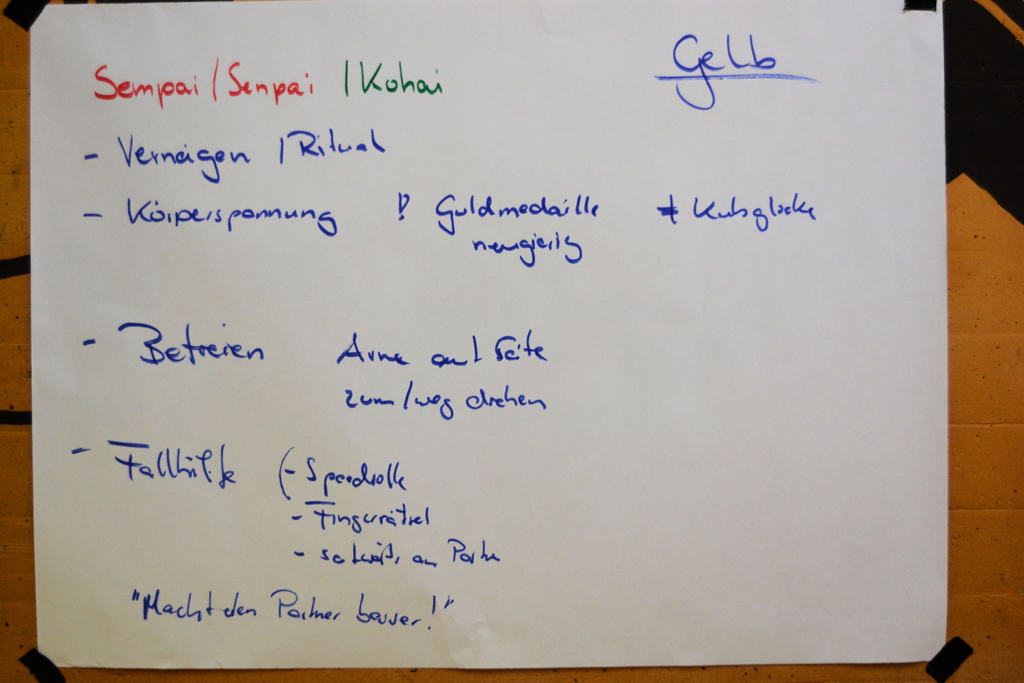 Gelb
Sempai / Senpai / Kohai
- Verneigen / Ritual
- Körperspannung !? Goldmedaille ≠ Kuhglocke
neugierig
- Befreien Arme auf Seite
zum / weg drehen
- Fallhilfe (- Speedrolle
- Fingerrätsel
- an Partner
"Macht den Partner besser!"